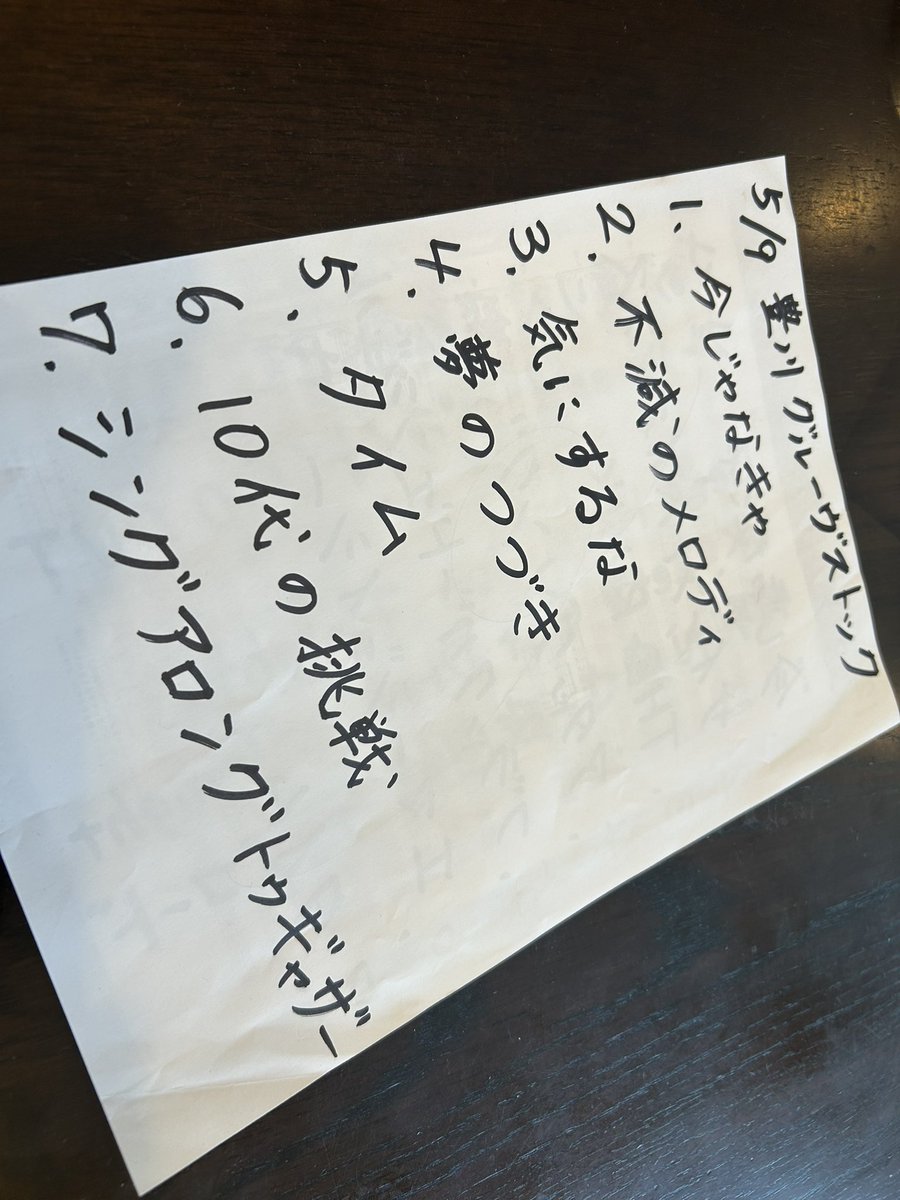 5/9 豊川グルーヴストック
1. 今じゃなきゃ
2. 不滅のメロディ
3. 気にするな
4. 夢のつづき
5. タイム
6. 10代の挑戦
7. シングアロングトゥギャザー